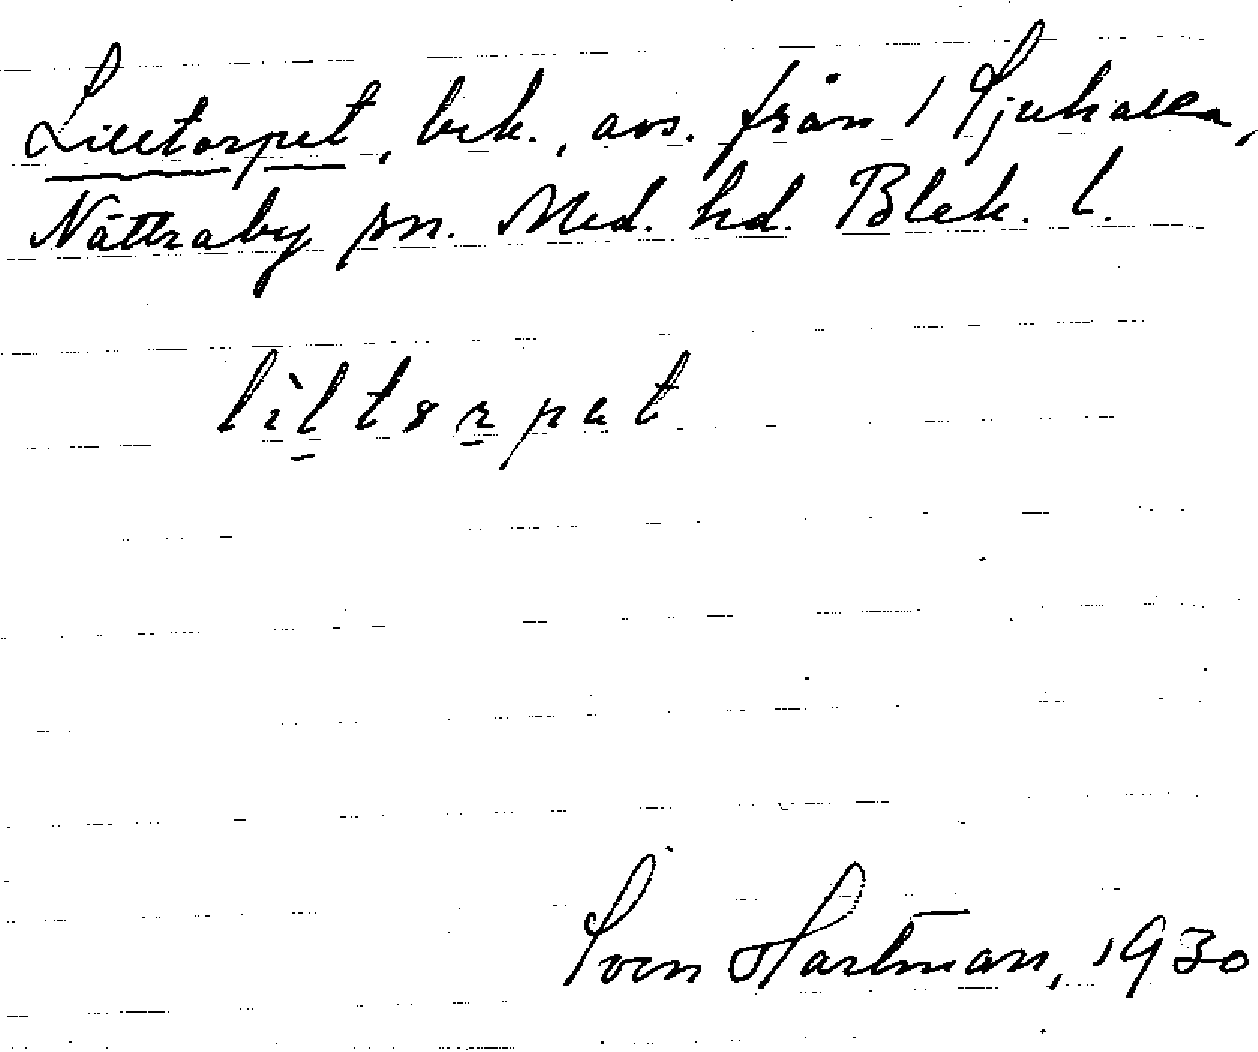 Lilletorpet, beb., avs. från 1 Sjuhalla,
Nättraby sn. Med. hd. Blek. l.
lìltorpet
Sven Hartman, 1930